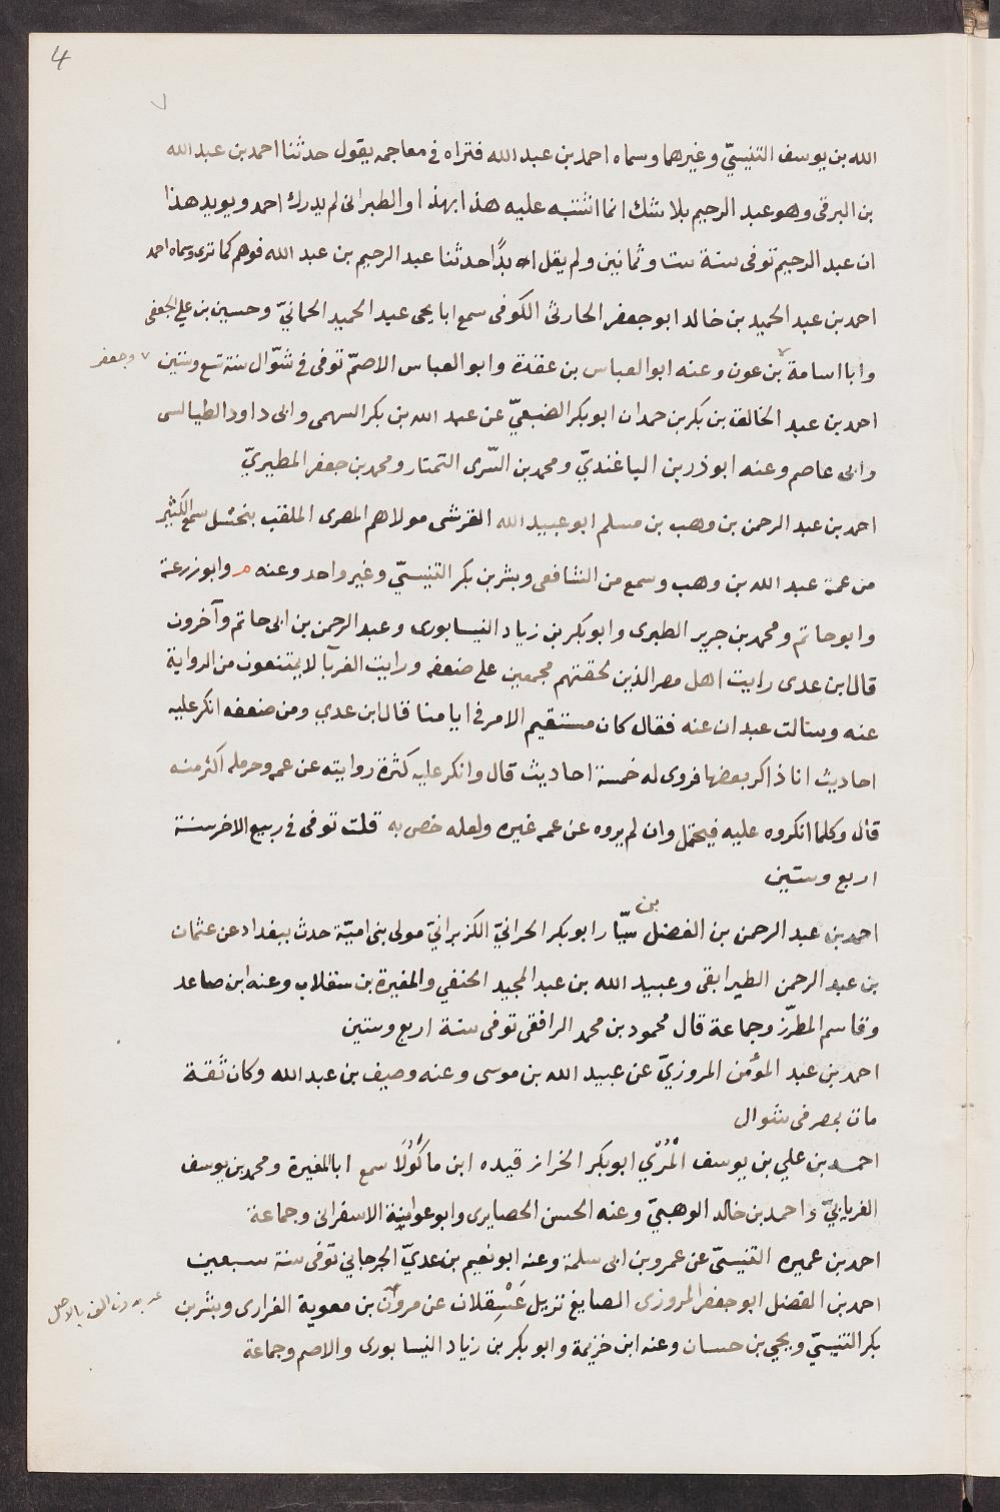 4
٧
الله بن يوسف التنيسيّ وغيرهما وسماه احمد بن عبد الله فتراه في معاجمه يقول حدثنا احمد بن عبد الله
بن البرقى وهو عبد الرحيم بلا شك انما اشتبه عليه هذا بهذا والطبرانى لم يدرك احمد ويويد هذا
ان عبد الرحيم توفى سنة ست وثمانين ولم يقل ابدًا حدثنا عبد الرحيم بن عبد الله فوهم كما ترى وسماه احمد
احمد بن عبد الحميد بن خالد ابو جعفر الحارثى الكوفى سمع ابا يحيى عبد الحميد الحمانيّ وحسين بن علي الجعفى
وابا اسامة بن عون وعنه ابو العباس بن عقدة وابو العباس الاصمّ توفى في شوّال سنة تسع وستين ٧ وجعفر
احمد بن عبد الخالق بن بكر بن حمدان ابو بكر الضبعيّ عن عبد الله بن بكر السهمى وابى داود الطيالسى
وابى عاصم وعنه ابو ذر بن الباغنديّ ومحمد بن السّرى التمتار ومحمد بن جعفر المطيريّ
احمد بن عبد الرحمن بن وهب بن مسلم ابو عبيد الله القرشى مولاهم المصرى الملقب بحشل سمع الكثير
من عمة عبد الله بن وهب وسمع من الشافعى وبشر بن بكر التنيسيّ وغير واحد وعنه م وابو زرعة
وابو حاتم ومحمد بن جرير الطبرى وابو بكر بن زياد النيسابورى وعبد الرحمن بن ابى حاتم وآخرون
قال ابن عدى رايت اهل مصر الذين لحقتهم مجمعين على ضعفه ورايت الغربآ لا يمتنعون من الرواية
عنه وسالت عبدان عنه فقال كان مستقيم الامر في ايامنا قال ابن عدي ومن ضعفه انكر عليه
احاديث انا ذاكر بعضها فروى له خمسة احاديث قال وانكر عليه كثرة روايته عن عمه وحرمله اكثر منه
قال وكلما انكروه عليه فيحتمل وان لم يروه عن عمه غيره ولعله خص به قلت توفى في ربيع الاخر سنة
اربع وستين
احمد بن عبد الرحمن بن الفضل بن سيّار ابو بكر الحرانيّ الكزبرانيّ مولى بنى اميّة حدث ببغداد عن عثمان
بن عبد الرحمن الطيرايقى وعبيد الله بن عبد المجيد الحنفي والمغيرة بن سقلاب وعنه ابن صاعد
وقاسم المطرّز وجماعة قال محمود بن محمد الرافقى توفى سنة اربع وستين
احمد بن عبد المؤمن المروزيّ عن عبيد الله بن موسى وعنه وصيف بن عبد الله وكان ثقة
مات بمصر فى شوال
احمد بن علي بن يوسف المُرّي ابو بكر الخراز قيده ابن ماكُولَا سمع ابا المغيرة ومحمد بن يوسف
الفريابيّ واحمد بن خالد الوهبيّ وعنه الحسن الحصايرى وابو عوانة الاسفرانى وجماعة
احمد بن عميره التنيسىّ عن عمرو بن ابى سلمة وعنه ابو نعيم بن عديّ الجرجاني توفى سنة سبعين
احمد بن الفضل ابو جعفر المروزى الصايغ نزيل عَسْقِلان عن مروان بن معوية الفزارى وبشر بن
بكر التنيسيّ ويحيي بن حسان وعنه ابن خزيمة وابو بكر بن زياد النيسابورى والاصم وجماعة